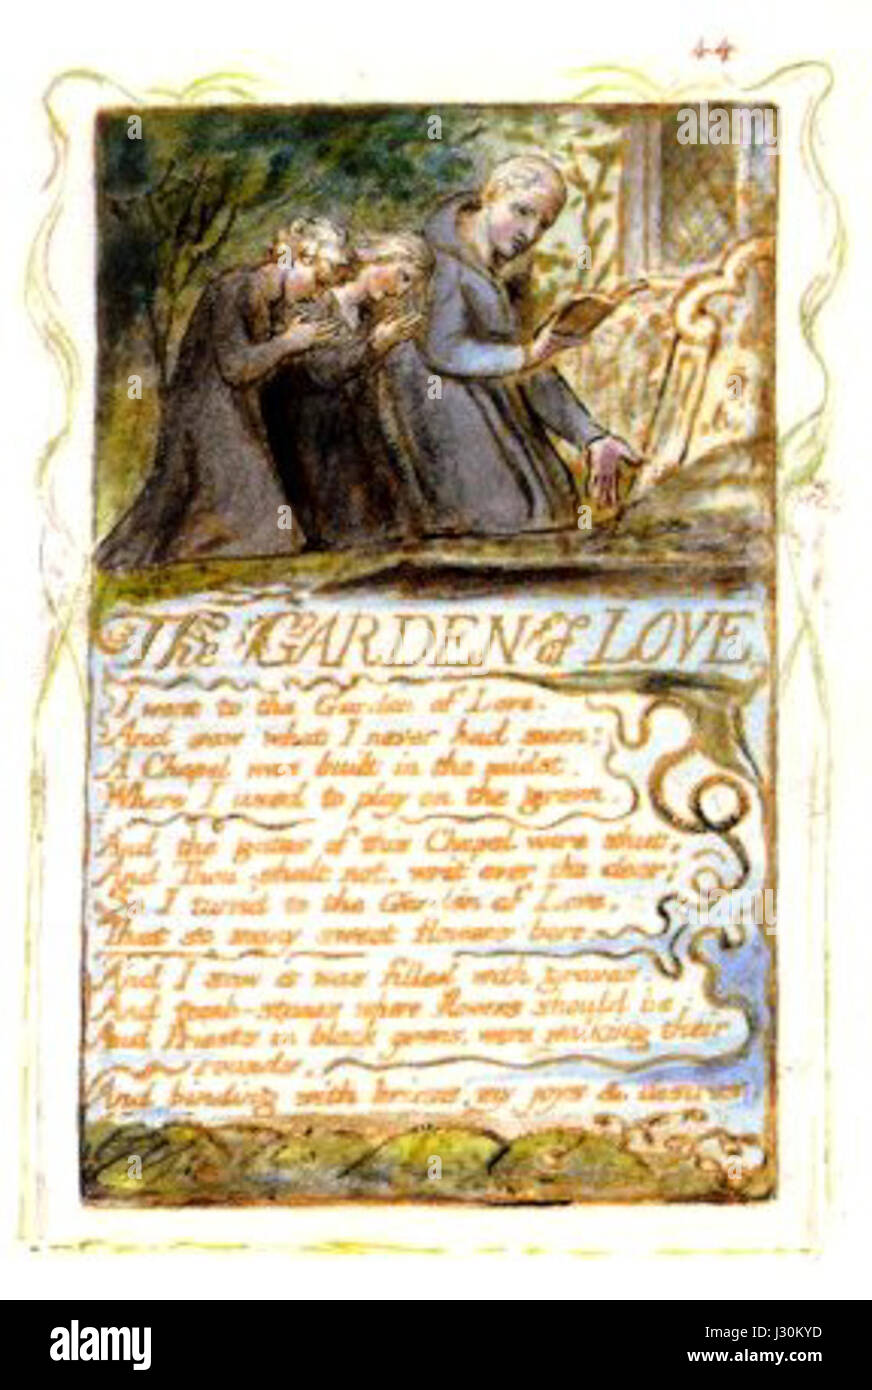 44
The GARDEN of LOVE
I went to the Garden of Love.
And saw what I never had seen:
A Chapel was built in the midst,
Where I used to play on the green.
And the gates of this Chapel were shut,
And Thou shalt not. writ over the door;
So I turnd to the Garden of Love,
That so many sweet flowers bore.
And I saw it was filled with graves,
And tomb-stones where flowers should be:
And Priests in black gowns, were walking their
rounds,
And binding with briars, my joys & desires.
alamy
Image ID: J30KYD
www.alamy.com